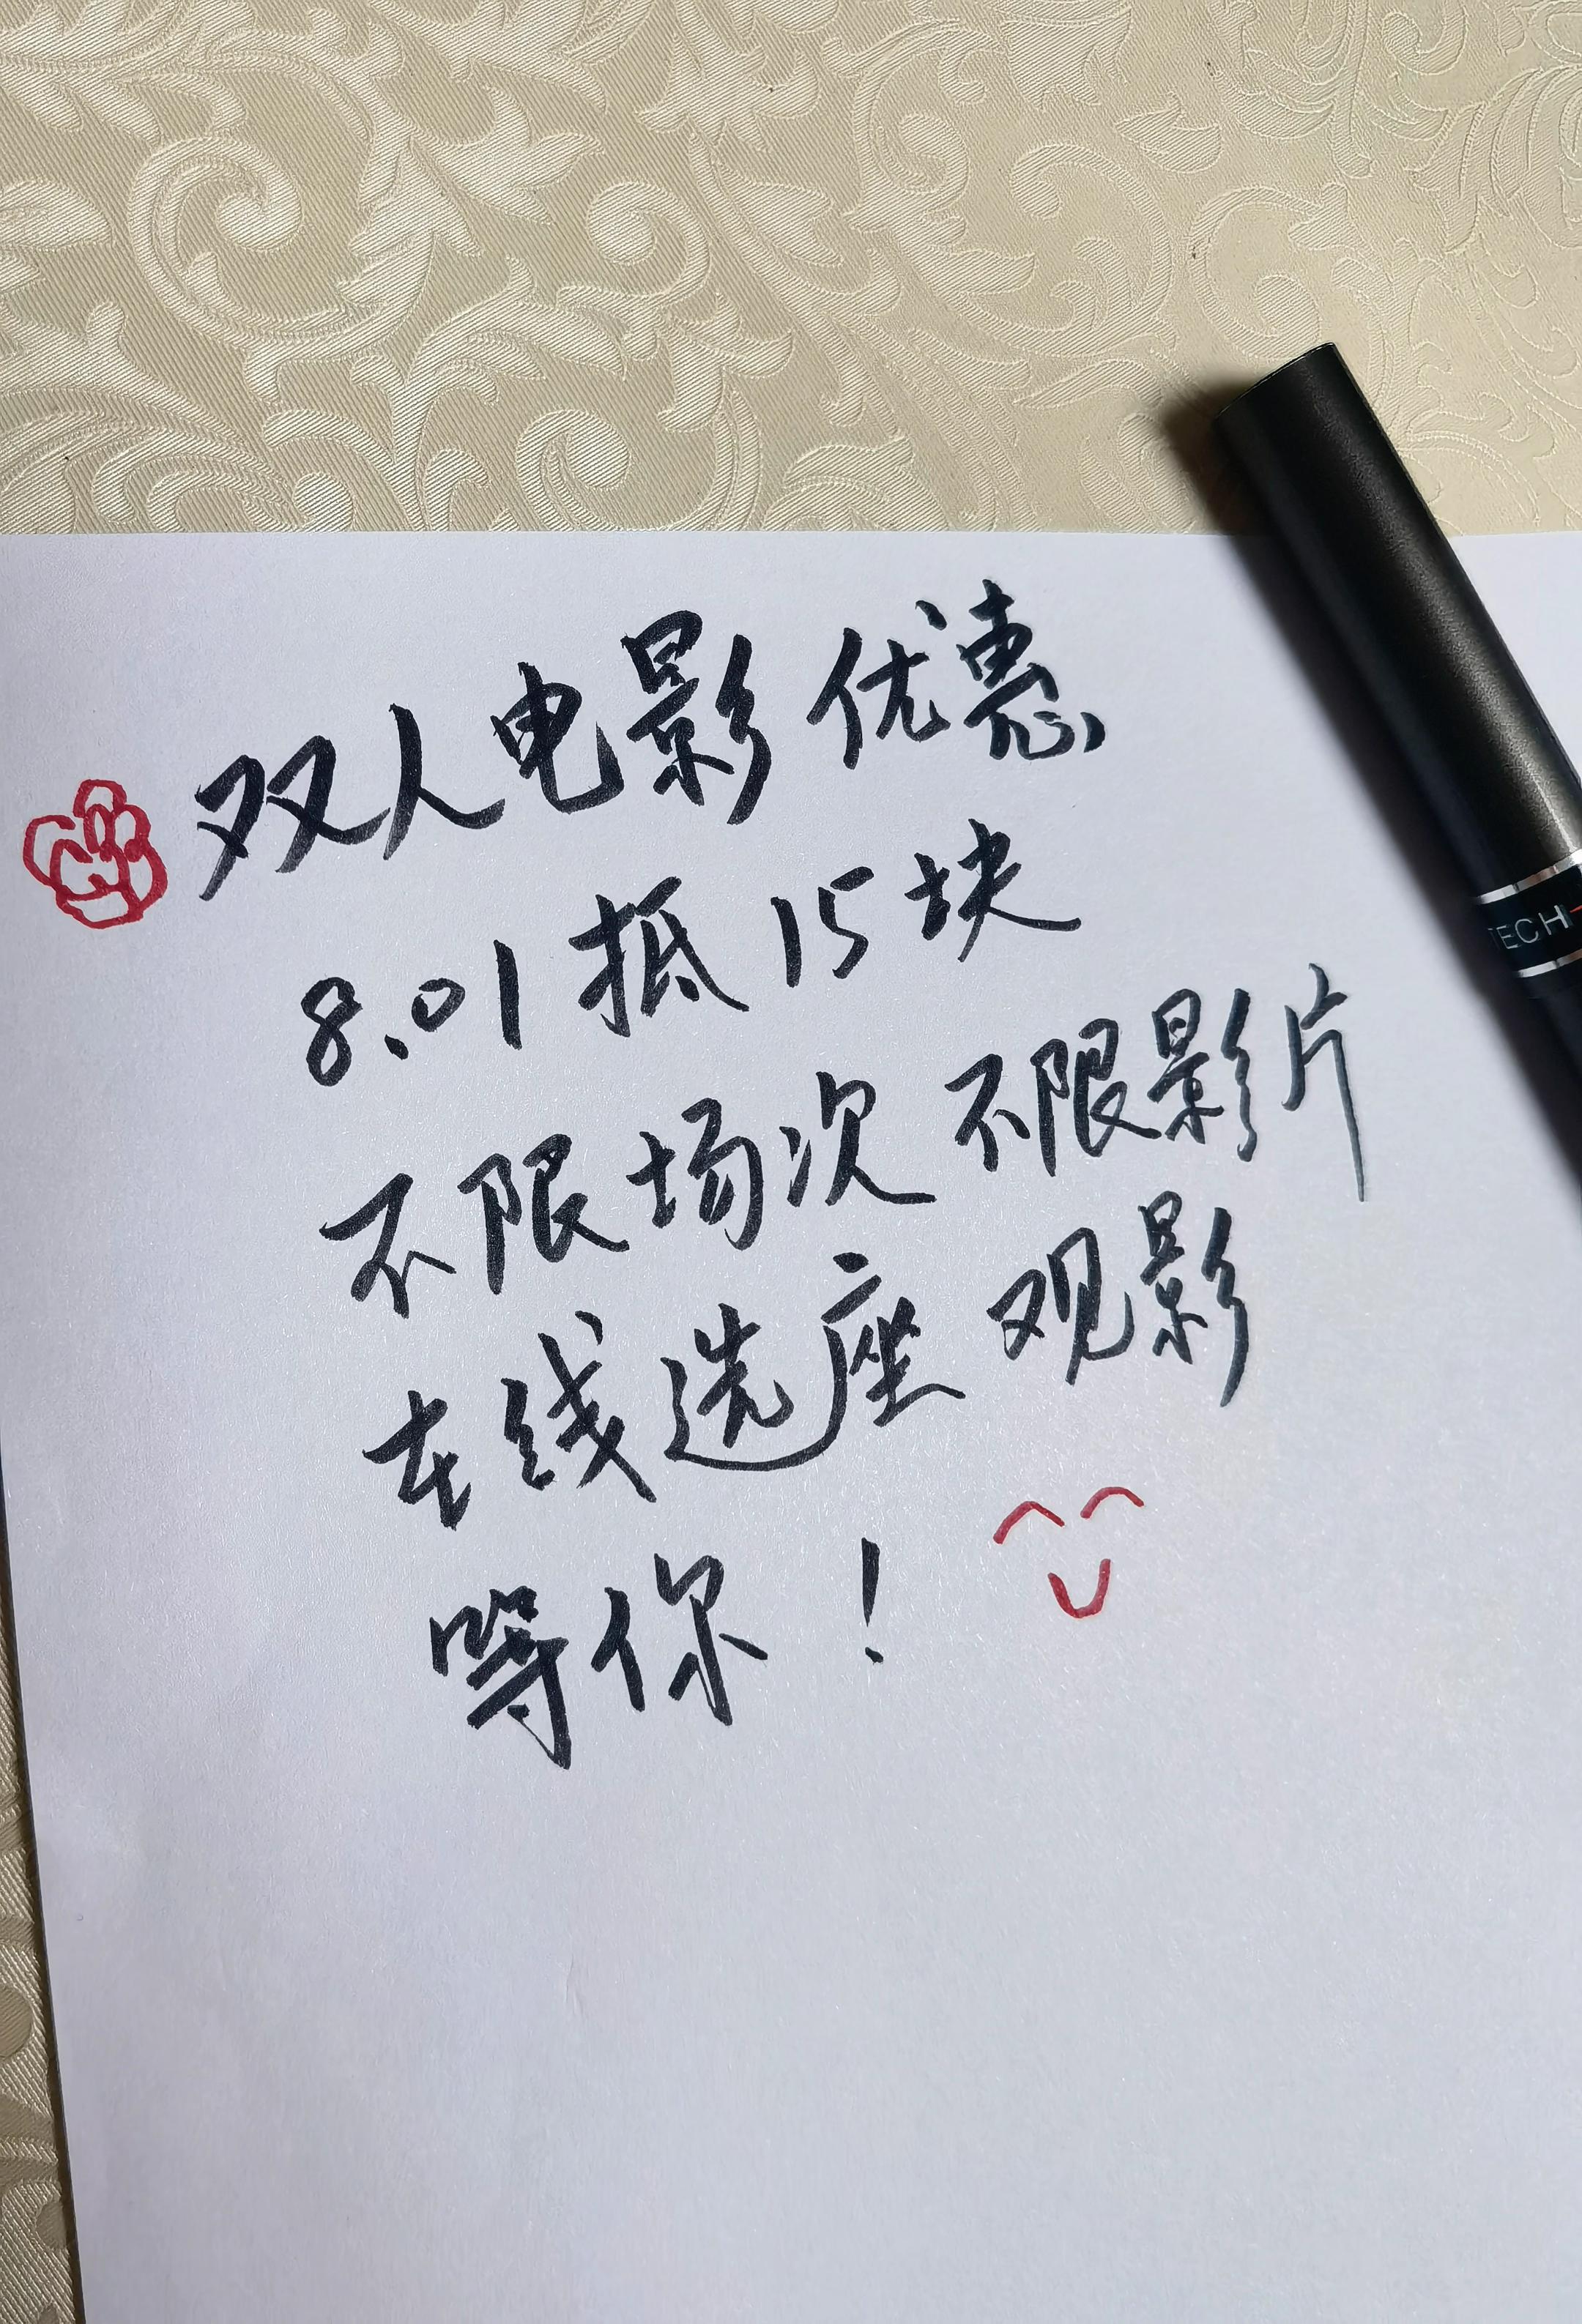 双人电影优惠
8.01抵15块
不限场次 不限影片
在线选座 观影
等你！
TECH